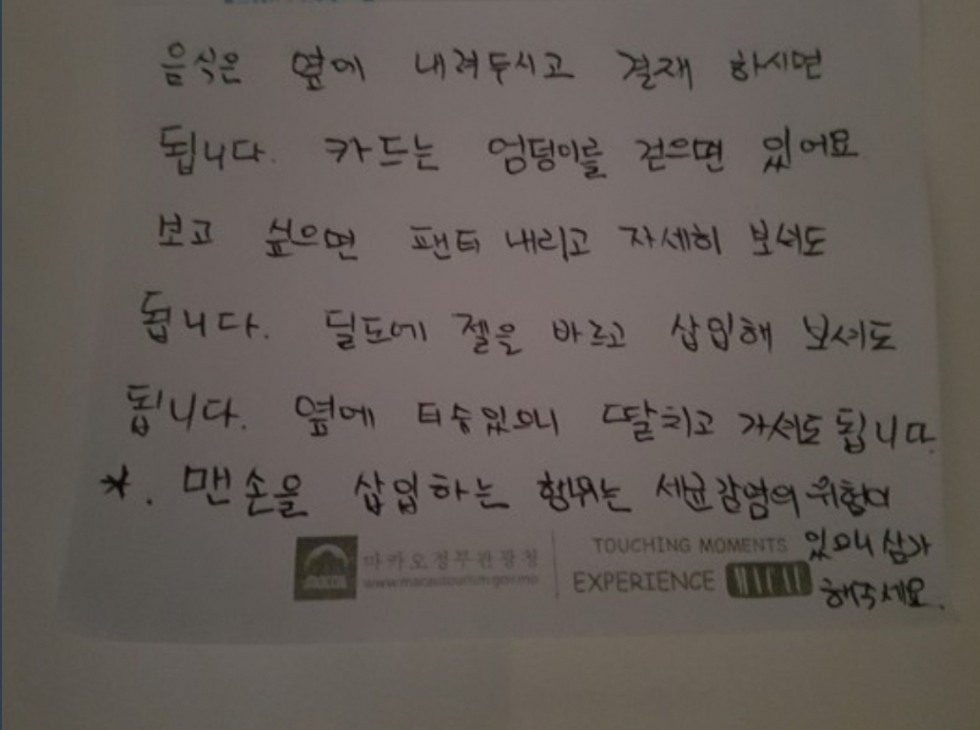 음식은 옆에 내려두시고 결재 하시면
됩니다. 카드는 엉덩이를 걷으면 있어요
보고 싶으면 팬티 내리고 자세히 보셔도
됩니다. 딜도에 젤을 바르고 삽입해 보셔도
됩니다. 옆에 티슈있으니 딸치고 가셔도 됩니다.
*. 맨손을 삽입하는 행위는 세균감염의 위험이
있으니 삼가
해주세요.
마카오정부관광청
www.macautourism.gov.mo
TOUCHING MOMENTS
EXPERIENCE MACAU